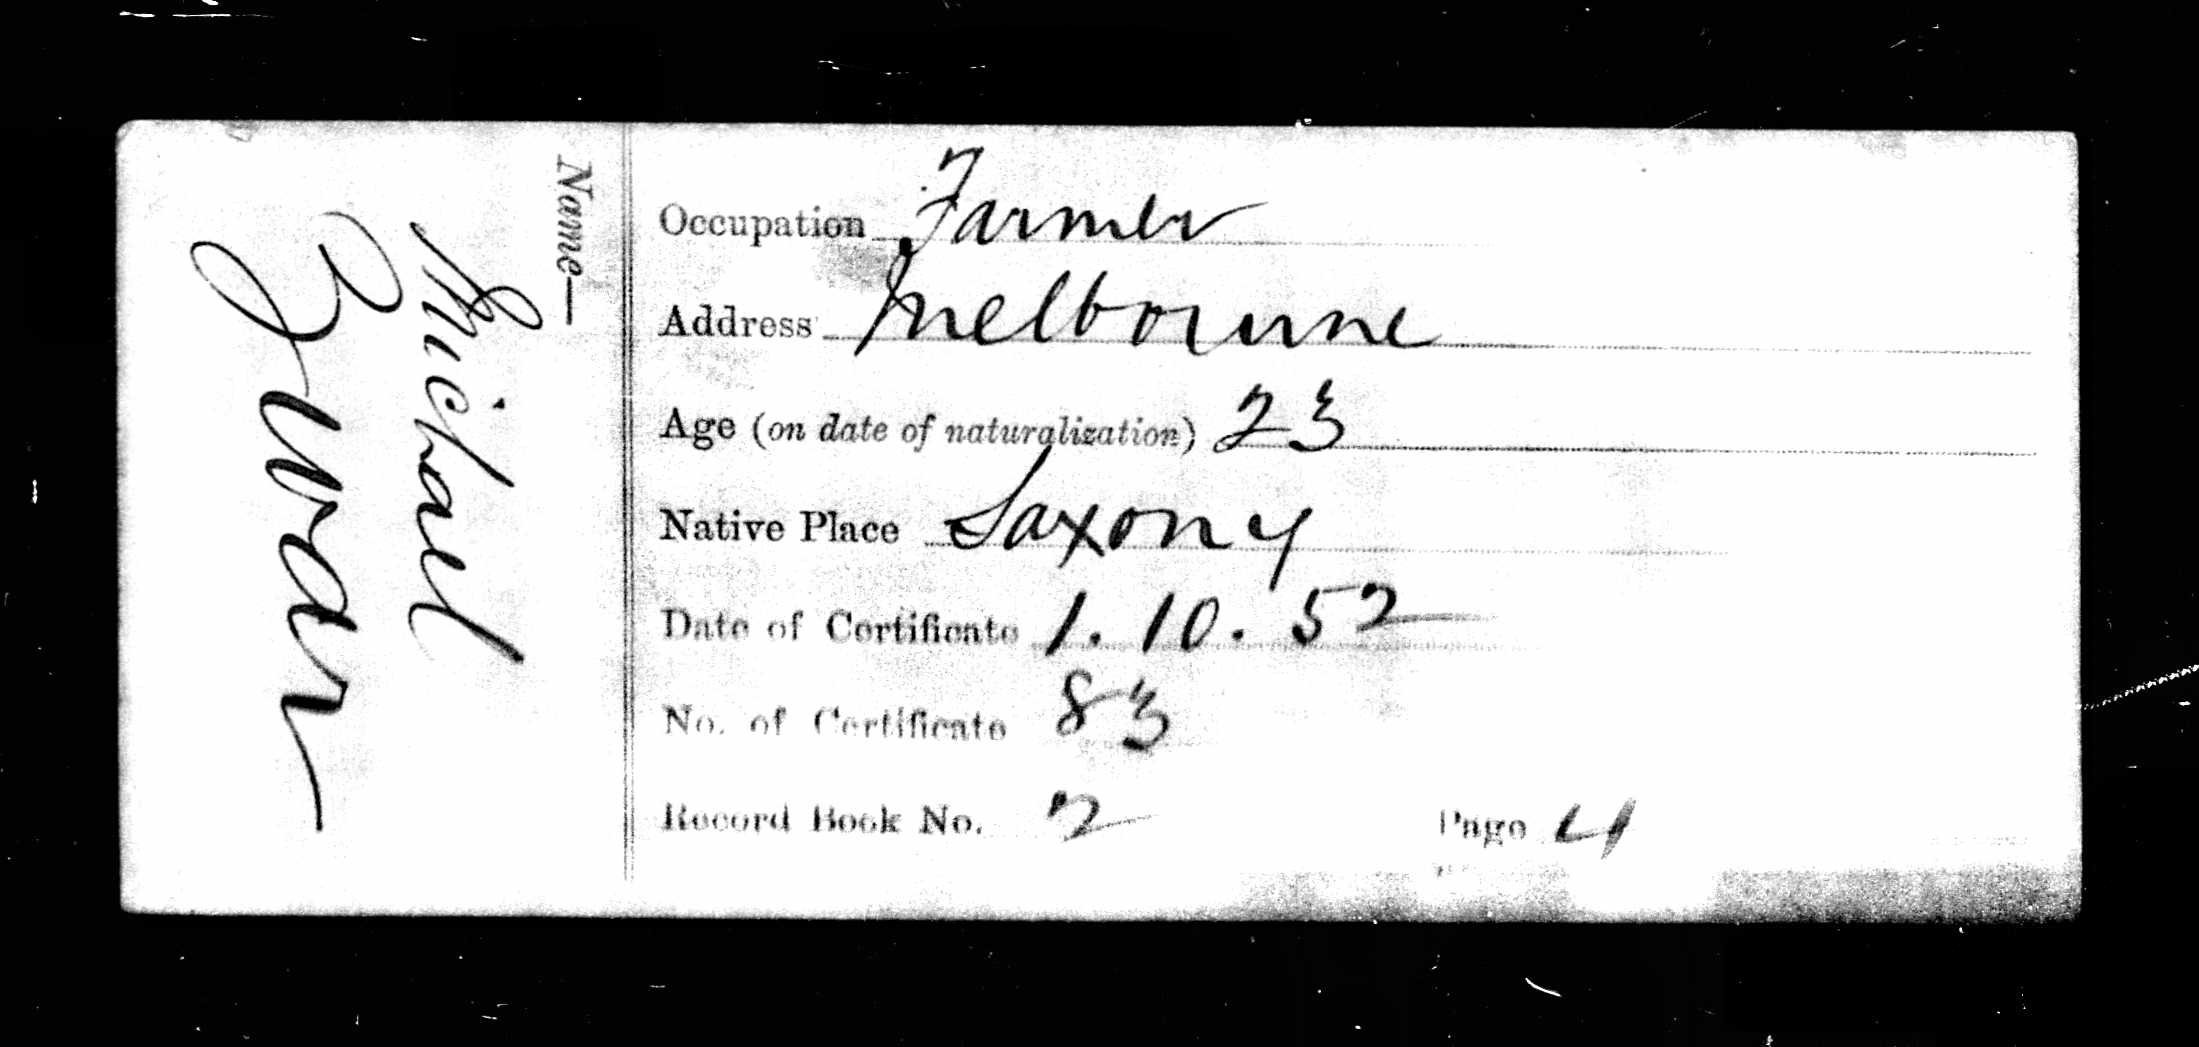 Name—
Michael
Zwar
Occupation Farmer
Address Melbourne
Age (on date of naturalization) 23
Native Place Saxony
Date of Certificate 1. 10. 52
No. of Certificate 83
Record Book No. 2 Page 4